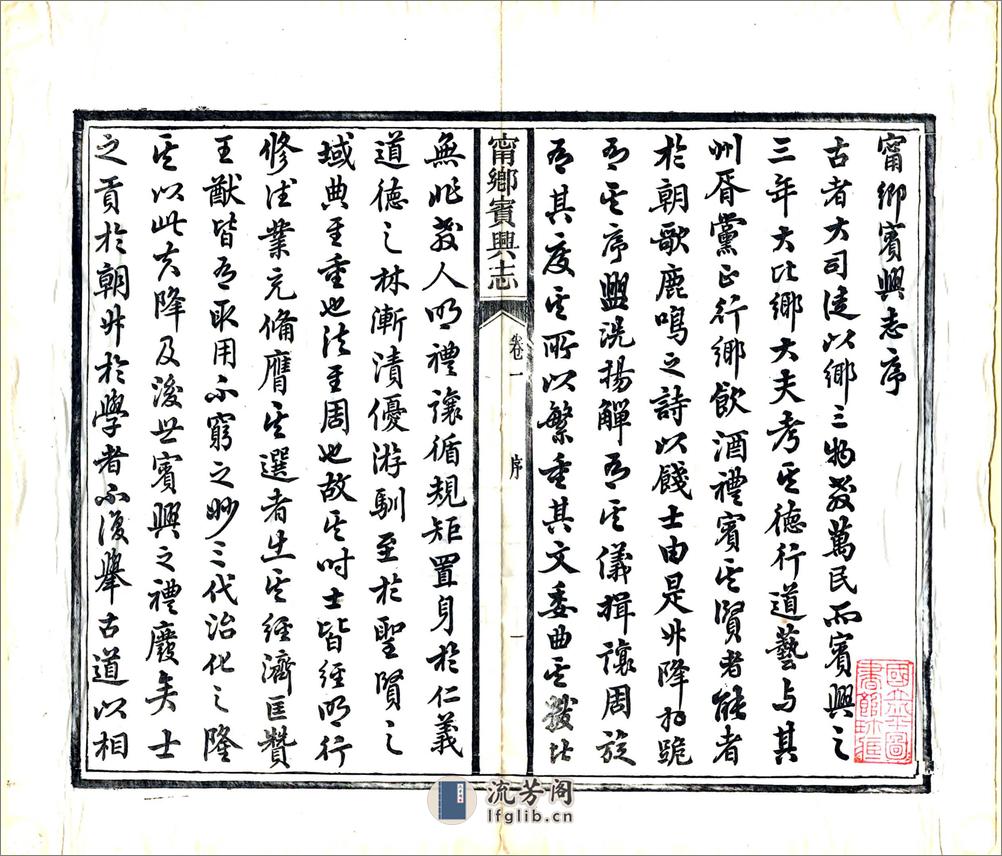 甯鄉賓興志序
古者大司徒以鄉三物教萬民而賓興之
三年大比鄉大夫考其德行道藝与其
州胥黨正行鄉飲酒禮賓其賢者能者
於朝歌鹿鳴之詩以餞士由是升降拜跪
有其序盥洗揚觶有其儀揖讓周旋
有其度其所以繁重其文委曲其數比
甯鄉賓興志
卷一
序
一
無非教人明禮讓循規矩置身於仁義
道德之林漸漬優游馴至於聖賢之
域典至重也法至周也故其时士皆經明行
修德業充備膺其選者出其經濟匡贊
王猷皆有取用不窮之妙三代治化之隆
其以此夫降及後世賓興之禮廢矣士
之貢於朝升於學者不復舉古道以相
流芳阁
lfglib.cn